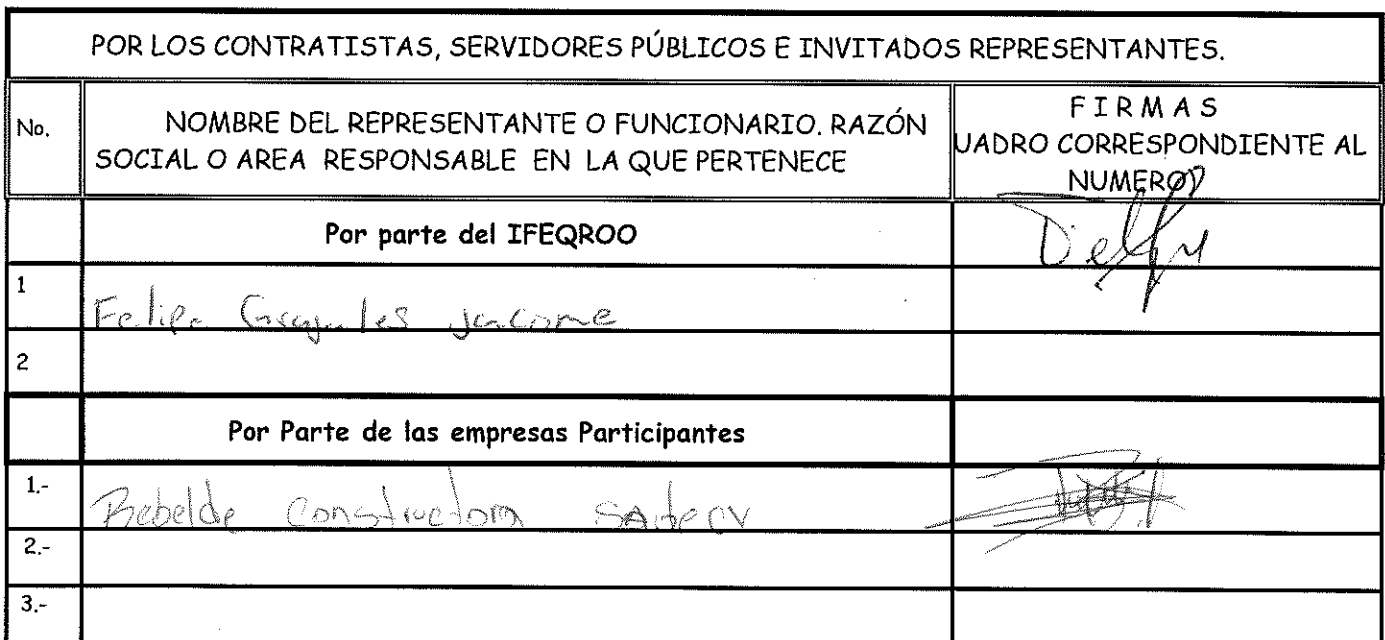 POR LOS CONTRATISTAS, SERVIDORES PÚBLICOS E INVITADOS REPRESENTANTES.
No.
NOMBRE DEL REPRESENTANTE O FUNCIONARIO. RAZÓN
SOCIAL O AREA RESPONSABLE EN LA QUE PERTENECE
FIRMAS
UADRO CORRESPONDIENTE AL
NUMERO)
Por parte del IFEQROO
1
Felipe Grajales jacome
2
Por Parte de las empresas Participantes
1.-
Rebelde Constructora SA de CV
2.-
3.-